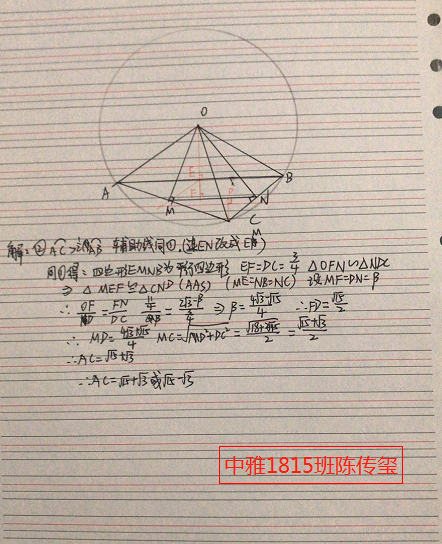 O
E
F
P
D
A
B
M
N
C
解:② AC>弧AB 辅助线同①,(连EN改成EM)
同①得:四边形EMNB为平行四边形 EF=DC=3/4 △OFN∽△NDC
⇒ △MEF≌△CND (AAS) (ME=NB=NC) 设MF=DN=β
⇒ β=(4√3+√15)/4 ∴FD=√15/2
∴ MD=(4√3+√15)/4 MC=√(MD²+DC²)= =(√15+√3)/2
∴AC=√15+√3
∴AC=√15+√3或√15-√3
中雅1815班陈传玺